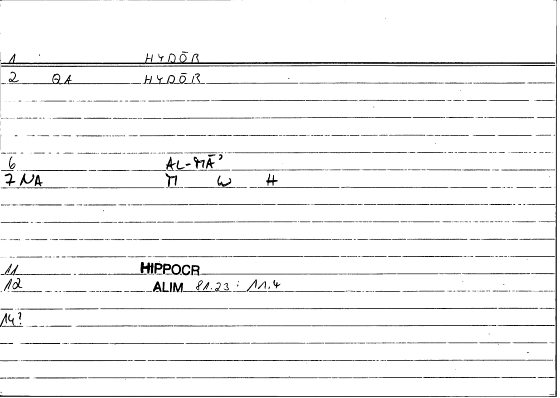 1 HYDŌR
2 QA HYDŌR
6 AL-MĀʾ
7 NA M W H
11 HIPPOCR
12 ALIM 81.23 : 11.4
14?